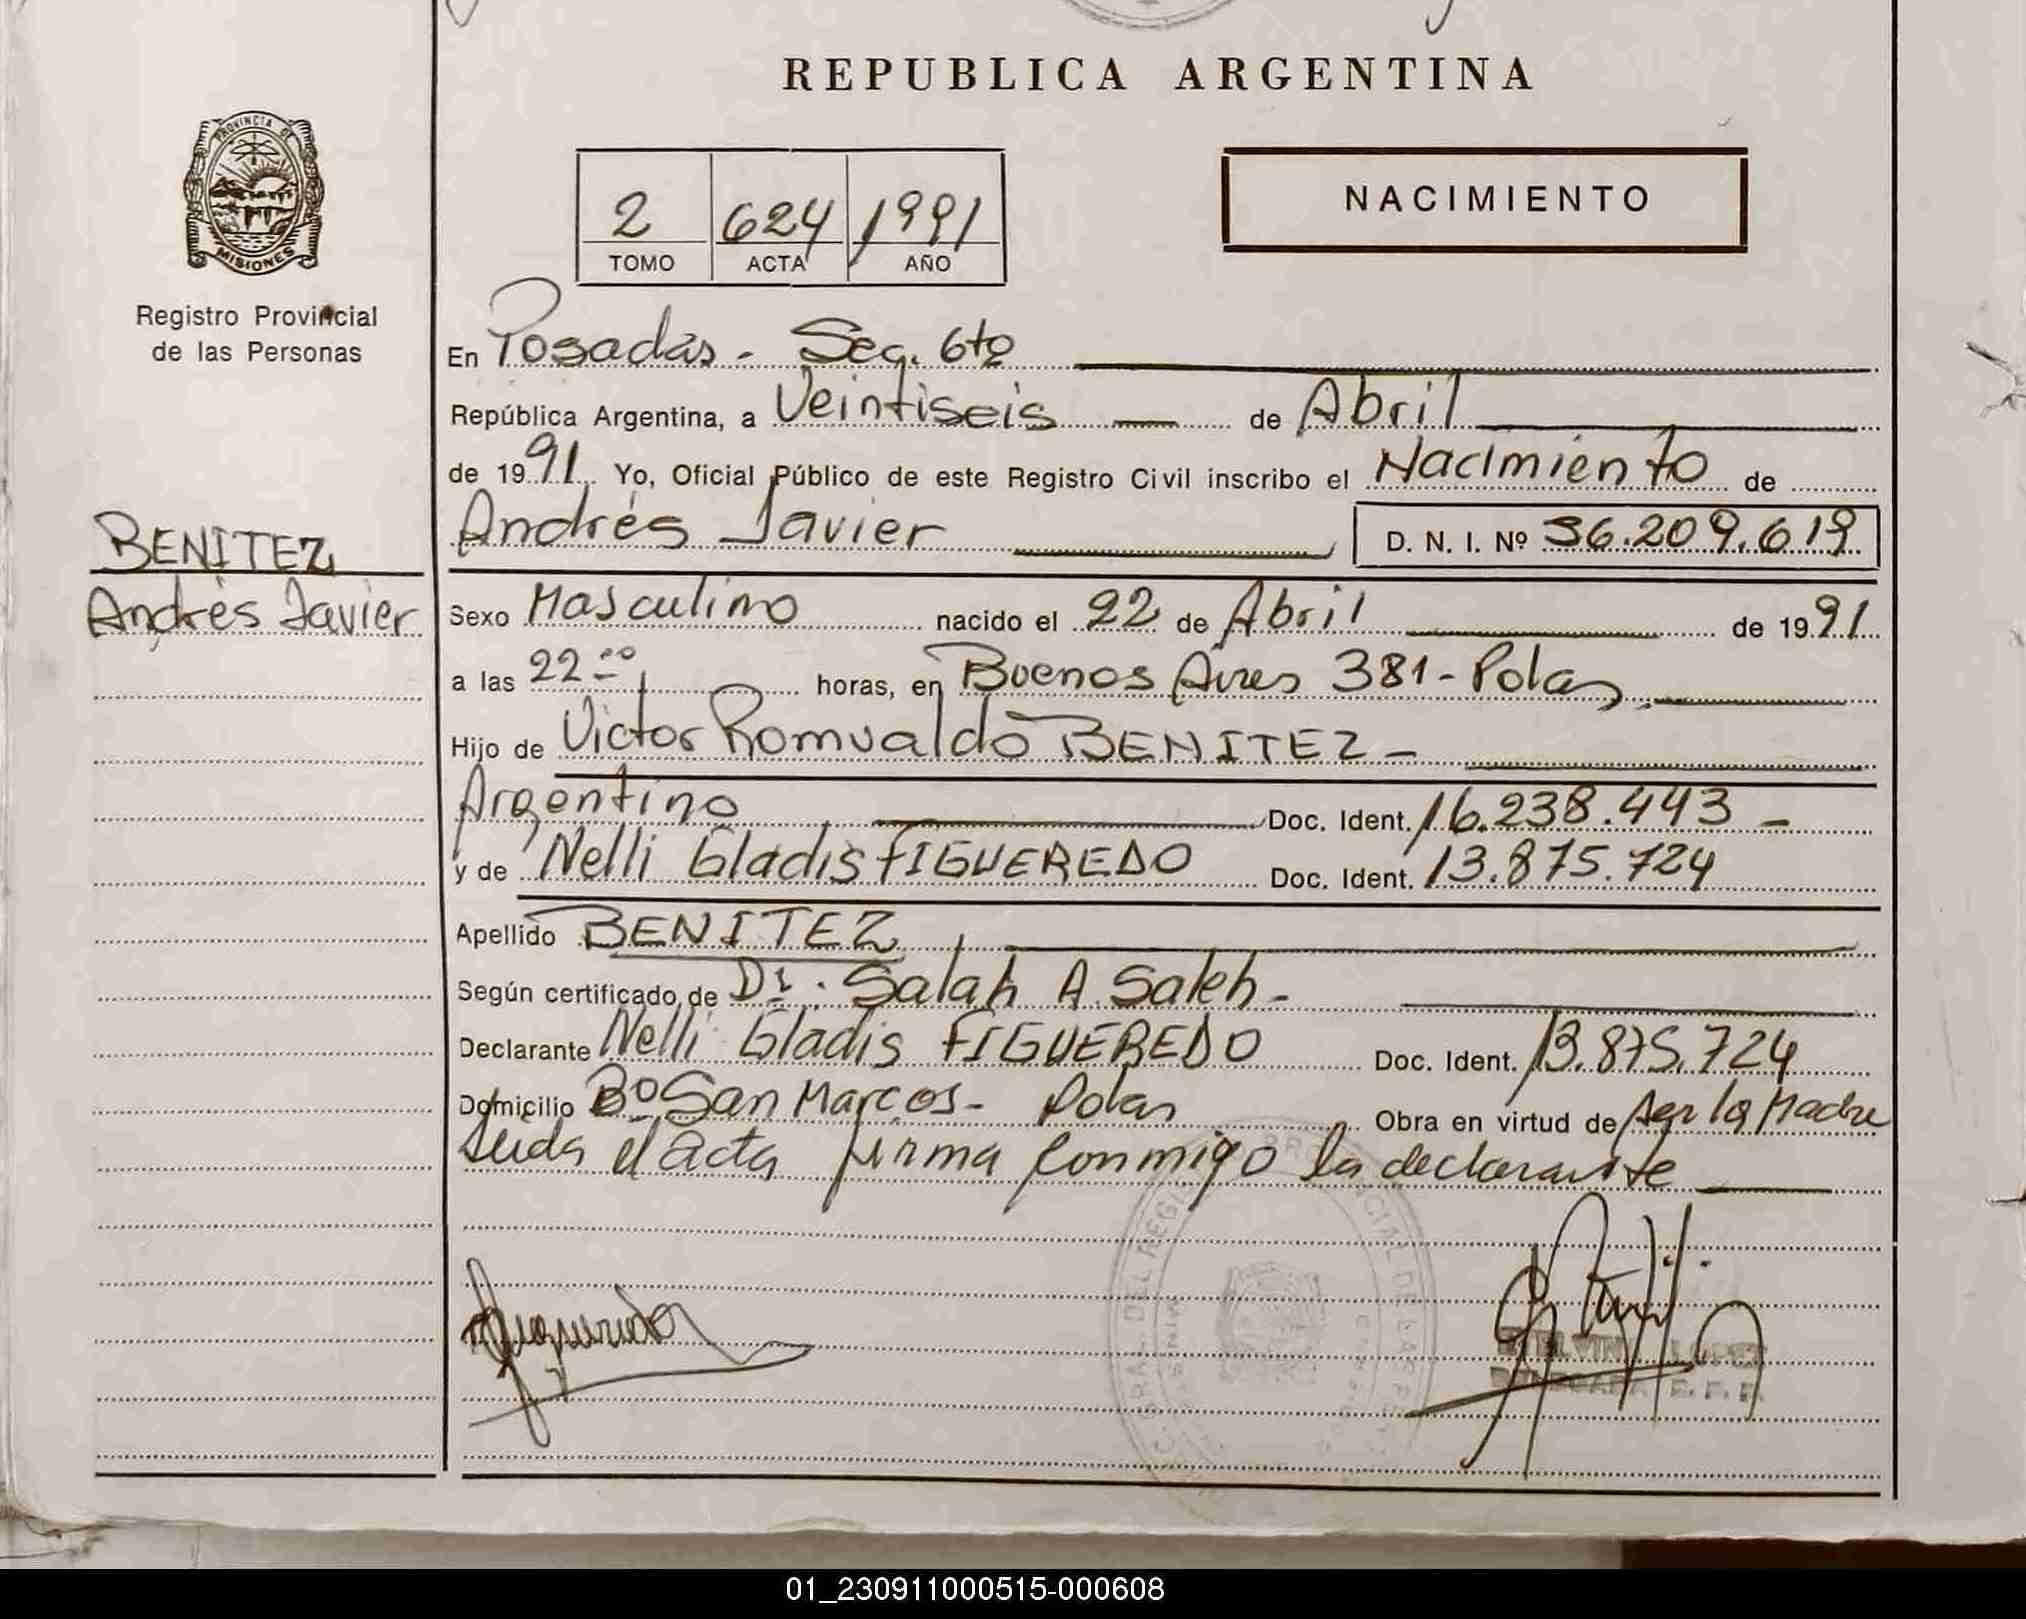 REPUBLICA ARGENTINA
PROVINCIA DE
MISIONES
Registro Provincial
de las Personas
2 624 1991
TOMO ACTA AÑO
NACIMIENTO
En Posadas - Sec. 6ta
República Argentina, a Veintiseis de Abril
de 1991 Yo, Oficial Público de este Registro Civil inscribo el Nacimiento de
Andrés Javier D. N. I. Nº 36.209.619
BENITEZ
Andrés Javier
Sexo Masculino nacido el 22 de Abril de 1991
a las 22 -00 horas, en Buenos Aires 381 - Pdas
Hijo de Victor Romualdo BENITEZ -
Argentino Doc. Ident. 16.238.443 -
y de Nelli Gladis FIGUEREDO Doc. Ident. 13.875.724
Apellido BENITEZ
Según certificado de Dr. Salah A. Saleh -
Declarante Nelli Gladis FIGUEREDO Doc. Ident. 13.875.724
Domicilio Bº San Marcos - Pdas Obra en virtud de ser la Madre
Leida el acta firma conmigo la declarante
LOPEZ
01_230911000515-000608